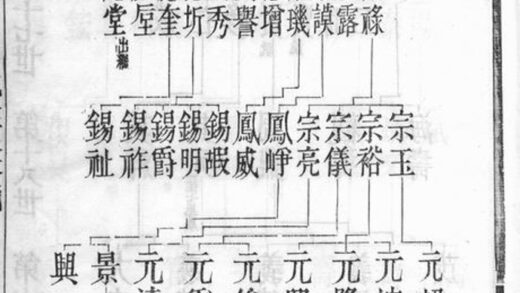 祿
露
謨
璣
增
譽
秀
圻
奎
垕
堂出繼
宗玉
宗裕
宗儀
宗亮
鳳崢
鳳威
錫嘏
錫明
錫爵
錫祚
錫祉
元
元
元
元
元
元
元
景
與